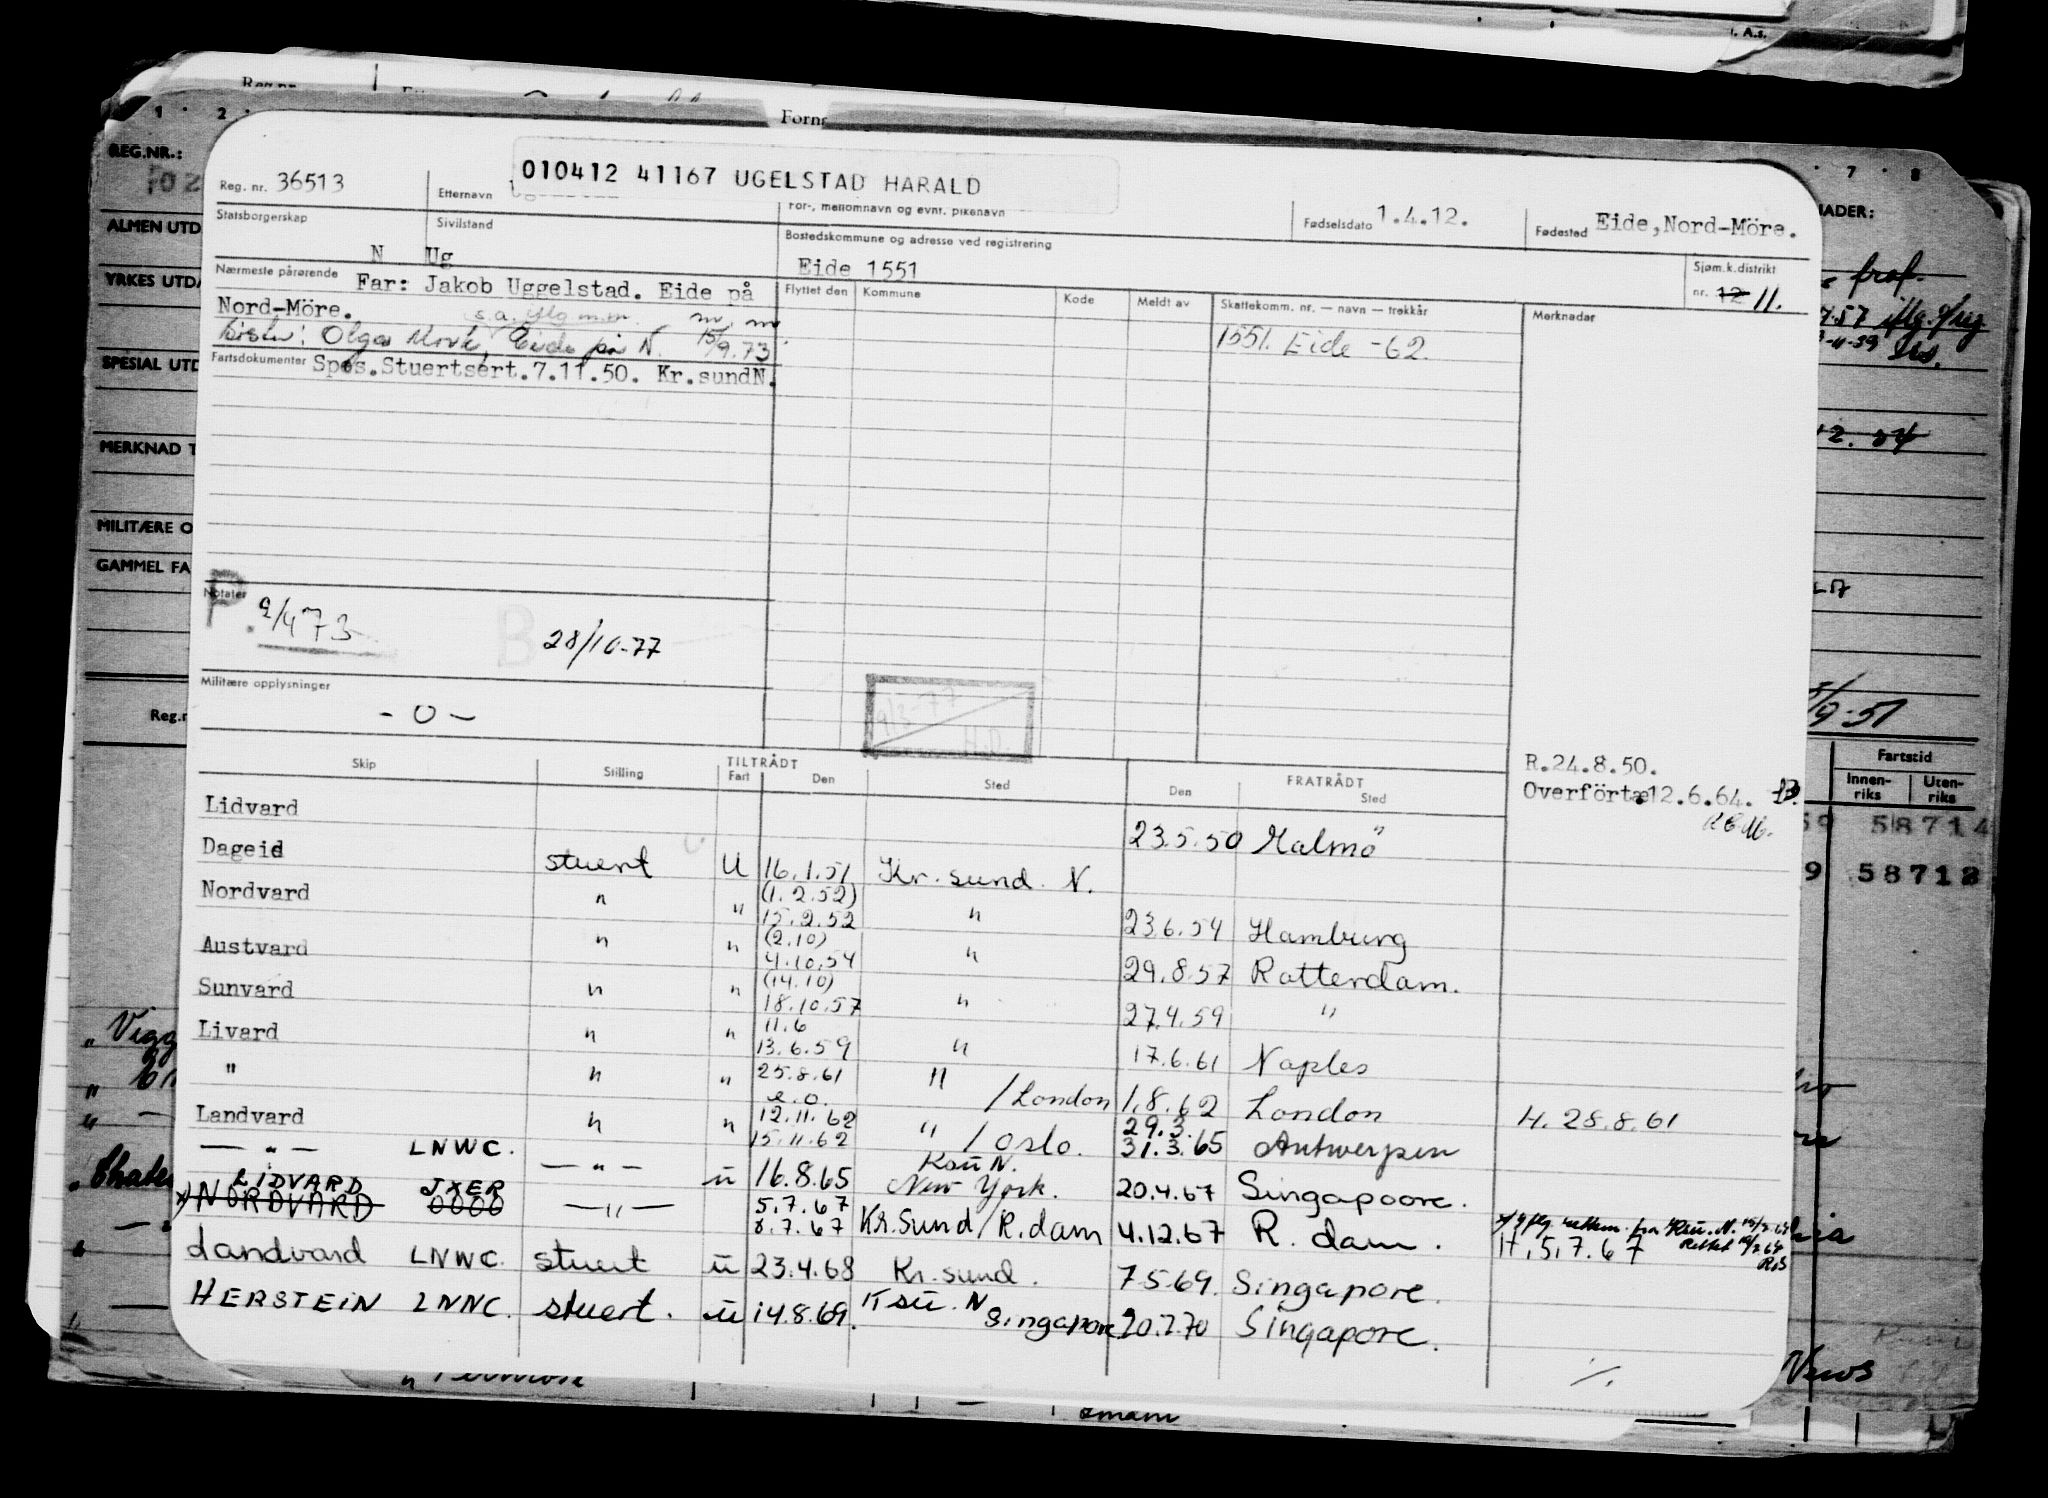 Reg. nr. 36513
Etternavn
010412 41167 UGELSTAD HARALD
For-, mellomnavn og evnt. pikenavn
Fødselsdato 1.4.12.
Fødested Eide, Nord-Möre.
Statsborgerskap N
Sivilstand Ug
Bostedskommune og adresse ved registrering
Eide 1551
Sjøm.k.distrikt
nr. 12 11.
Nærmeste pårørende Far: Jakob Uggelstad. Eide på
Nord-Möre.
Olga Eide på N. 15/9.73
Flyttet den Kommune Kode Meldt av Skattekomm. nr. — navn — trekkår Merknader
1551. Eide -62.
Fartsdokumenter Spes.Stuertsert.7.11.50. Kr.sundN.
Notater
P.
28/10-77
B
Militære opplysninger
- 0 -
9/3-77
H.D.
R.24.8.50.
Overført 12.6.64.
Skip Stilling TILTRÅDT Fart Den Sted FRATRÅDT Den Sted
Lidvard 23.5.50 Malmö
Dageid stuert U 16.1.51 Kr. sund. N.
Nordvard " " (1.2.52) 15.2.52 " 23.6.54 Hamburg
Austvard " " (2.10) 4.10.54 " 29.8.57 Rotterdam.
Sunvard " " (14.10) 18.10.57 " 27.4.59 "
Livard " " 11.6 13.6.59 " 17.6.61 Naples
" " " 25.8.61 e.o. " / London 1.8.62 London H. 28.8.61
Landvard " " 12.11.62 15.11.62 " / Oslo. 29.3. 31.3.65 Antwerpen
— " — LNWC. — " — u 16.8.65 Ksu N. New York. 20.4.67 Singapoore.
LIDVARD JXER
x) NORDVARD 0000 — " — 5.7.67 8.7.67 Kr.Sund/R.dam 4.12.67 R. dam. H. 5.7.67
Landvard LNWC. stuert u 23.4.68 Kr. sund. 7.5.69. Singapore.
HERSTEIN LNNC. stuert. u 14.8.69. Ksu. N Singapore 20.7.70 Singapore.
%
REG.NR.:
ALMEN UTD
YRKES UTDA
SPESIAL UTD
MERKNAD T
MILITÆRE O
GAMMEL FA
Reg.n
Fartstid
Innen-riks Uten-riks
58714
58713